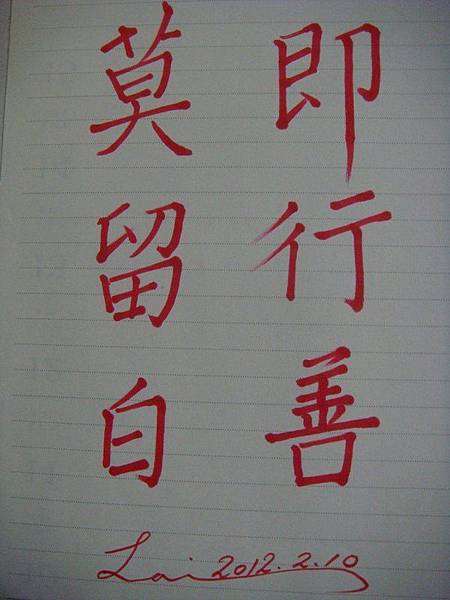 即行善
莫留白
Lai 2012.2.10